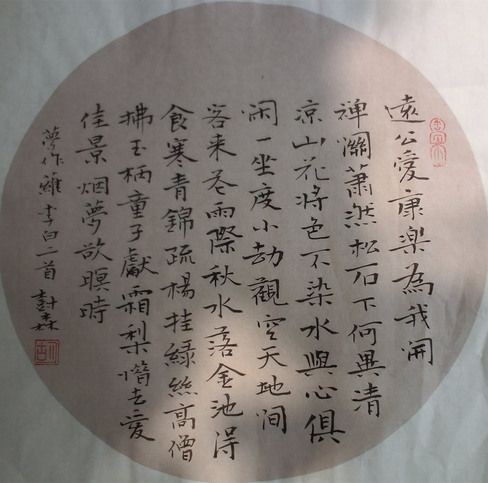 遠公愛康樂為我開
禅關蕭然松石下何異清
凉山花將色不染水與心俱
闲一坐度小劫觀空天地间
客来花雨際秋水落金池得
食寒青錦疏楊挂緑絲高僧
拂玉柄童子獻霜梨惜去愛
佳景烟夢欲暝時
李白二首 森